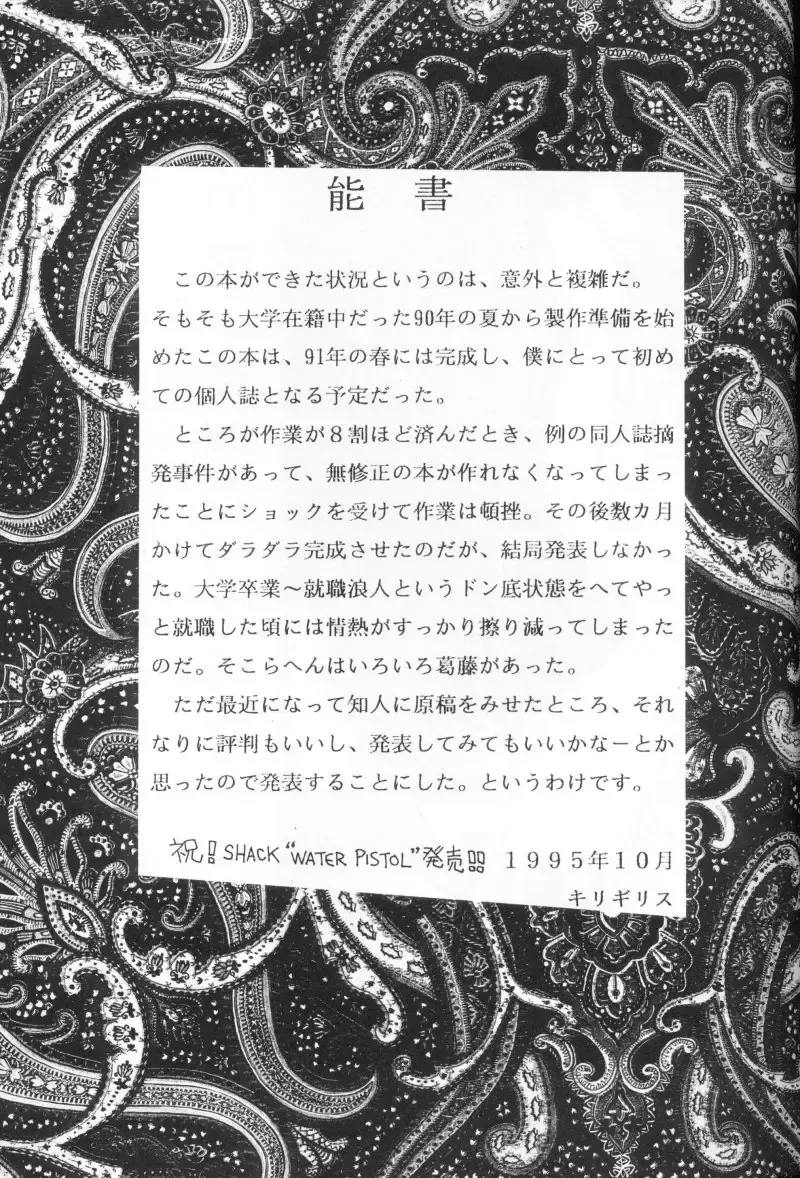 能書
この本ができた状況というのは、意外と複雑だ。
そもそも大学在籍中だった90年の夏から製作準備を始
めたこの本は、91年の春には完成し、僕にとって初め
ての個人誌となる予定だった。
ところが作業が８割ほど済んだとき、例の同人誌摘
発事件があって、無修正の本が作れなくなってしまっ
たことにショックを受けて作業は頓挫。その後数カ月
かけてダラダラ完成させたのだが、結局発表しなかっ
た。大学卒業～就職浪人というドン底状態をへてやっ
と就職した頃には情熱がすっかり擦り減ってしまった
のだ。そこらへんはいろいろ葛藤があった。
ただ最近になって知人に原稿をみせたところ、それ
なりに評判もいいし、発表してみてもいいかなーとか
思ったので発表することにした。というわけです。
祝！SHACK “WATER PISTOL”発売!! １９９５年１０月
キリギリス